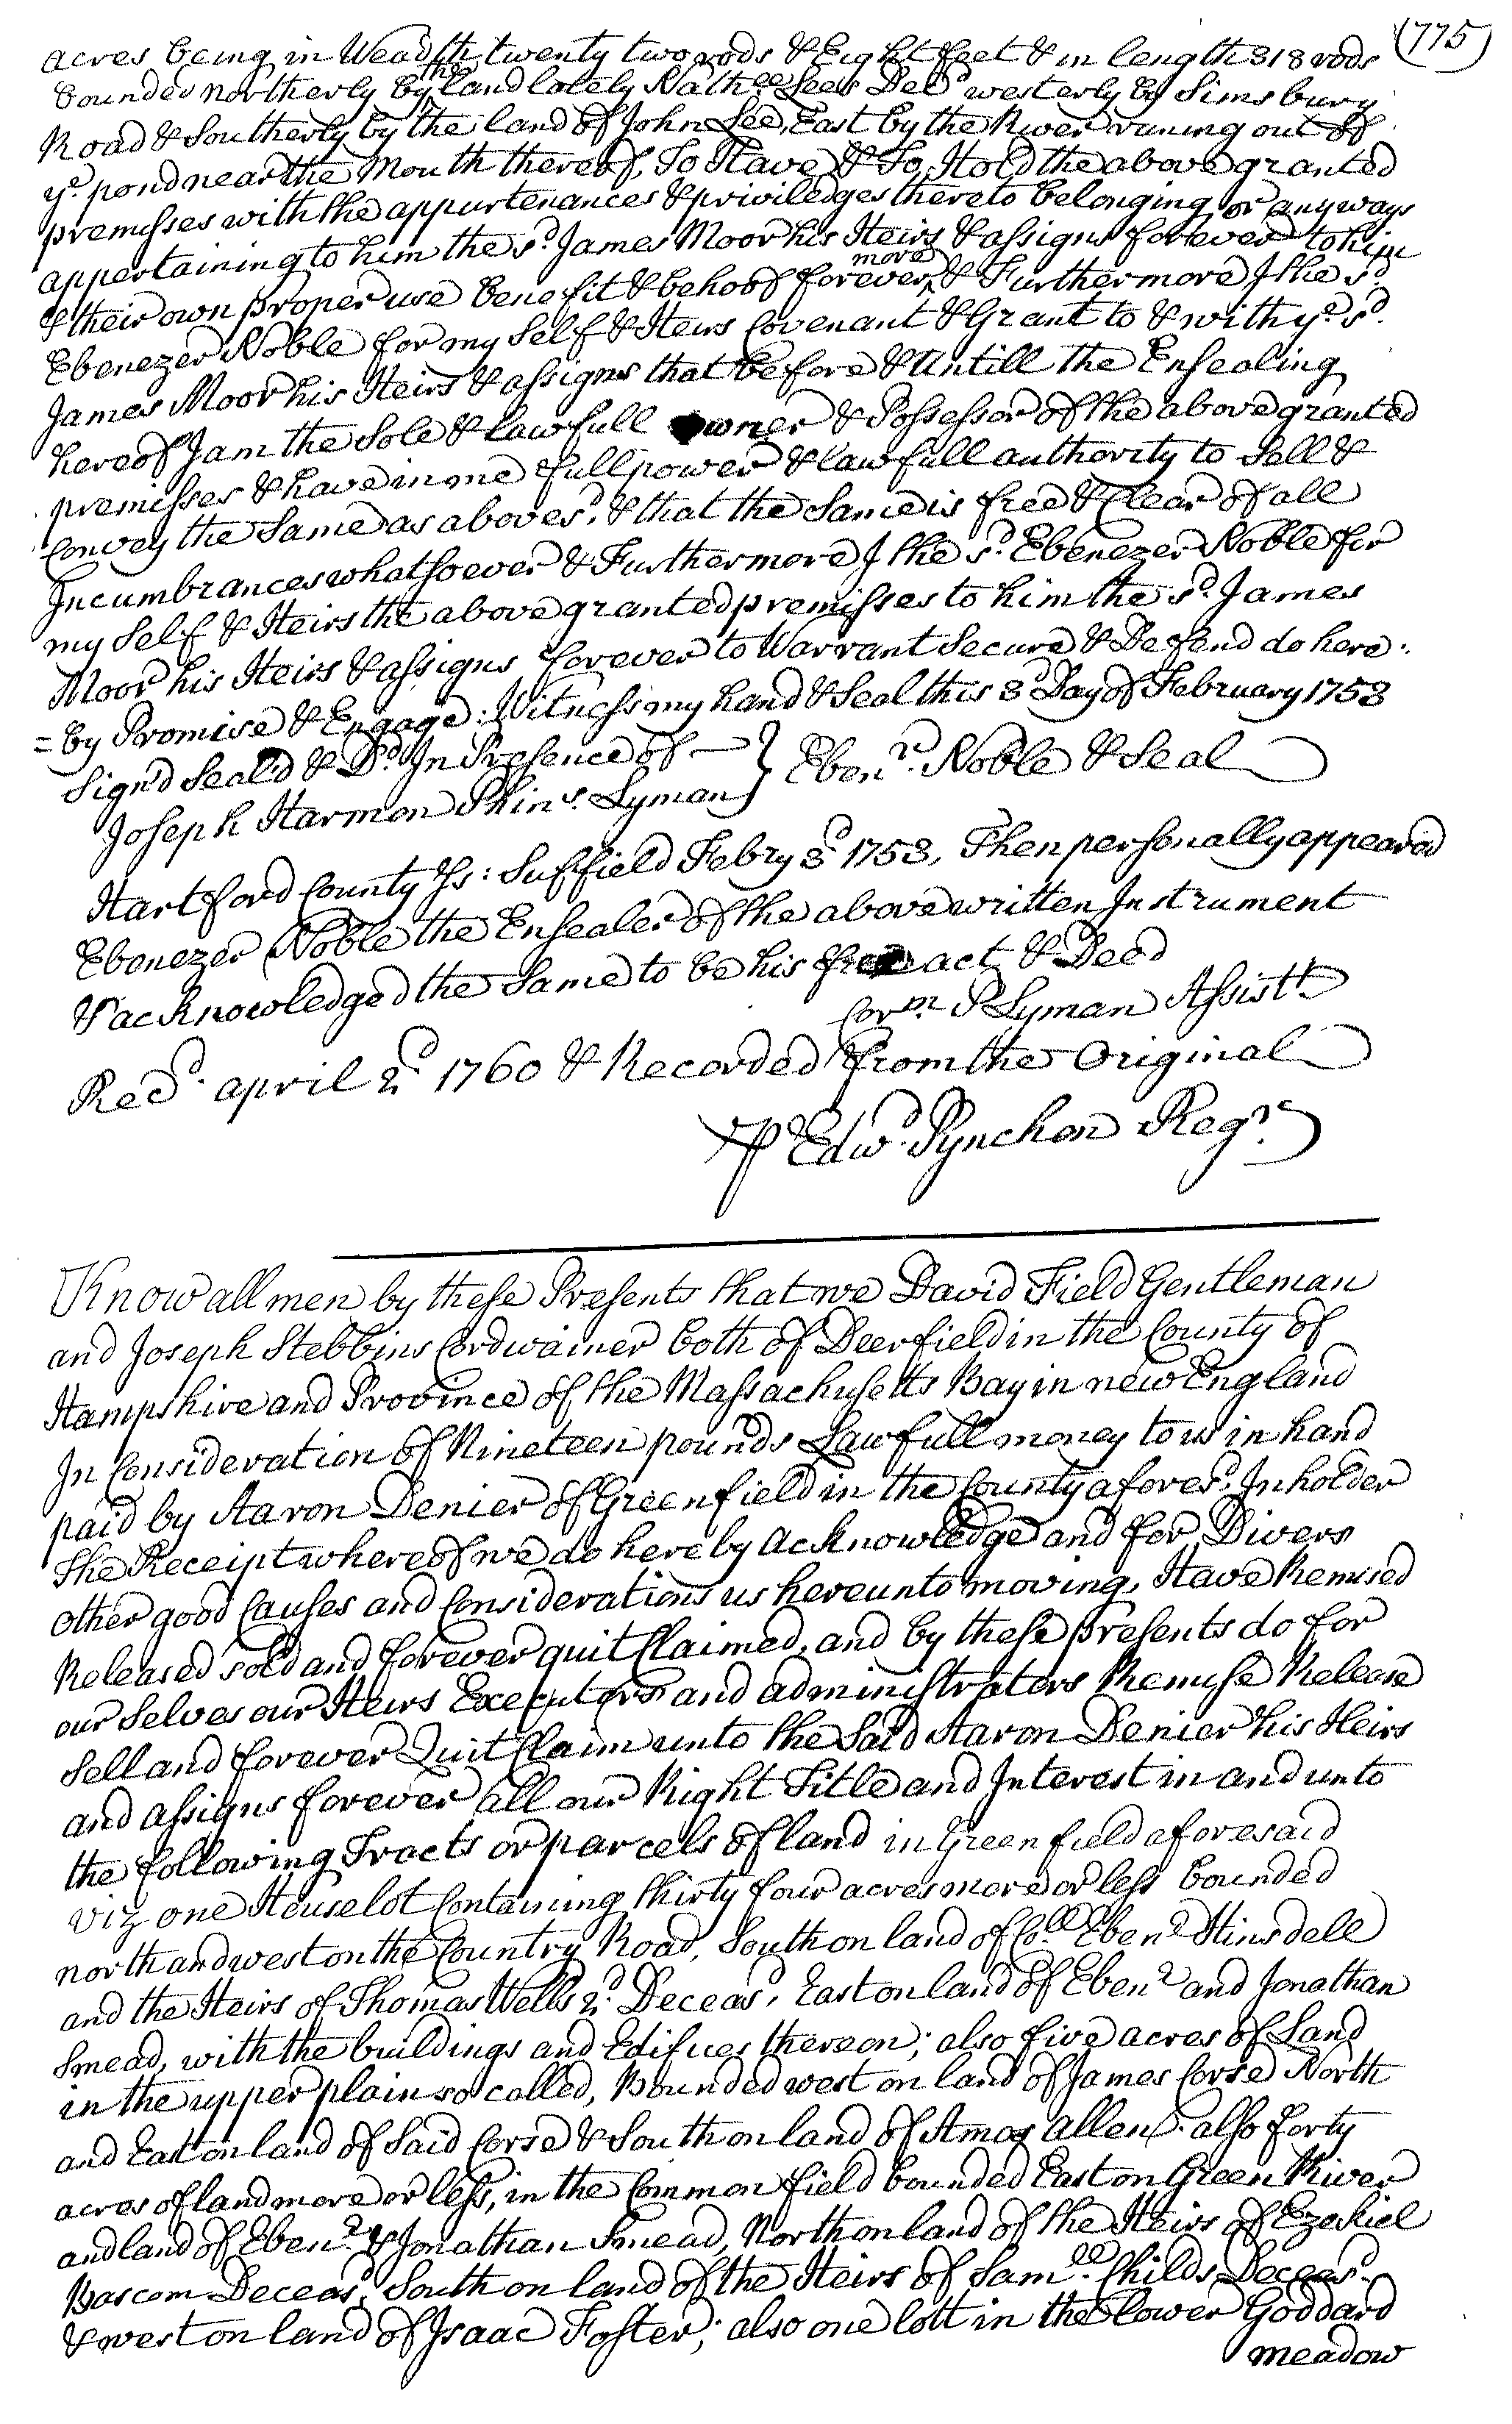 (775)
acres being in Weadth twenty two rods & Eight feet & in length 318 rods
bounded northerly by the land lately Nathll Lees Decd westerly by Simsbury
Road & Southerly by the land of John Lee, East by the River runing out of
ye pond near the Mouth thereof, To Have & To Hold the above granted
premisses with the appurtenances & priviledges thereto belonging or anyways
appertaining to him the sd James Moor his Heirs & assigns forever to him
& their own proper use benefit & behoof forever more & Furthermore I the sd
Ebenezer Noble for my Self & Heirs Covenant & Grant to & with ye sd
James Moor his Heirs & assigns that before & Untill the Ensealing
hereof I am the Sole & lawfull owner & Possessor of the above granted
premisses & have in me full power & lawfull authority to Sell &
Convey the Same as abovesd & that the Same is free & Clear of all
Incumbrances whatsoever & Furthermore I the sd Ebenezer Noble for
my Self & Heirs the above granted premisses to him the sd James
Moor his Heirs & assigns forever to Warrant Secure & Defend do here
= by Promise & Engage: Witness my hand & Seal this 3d Day of February 1753
Signd Seald & Dd In Presence of } Ebenr Noble & Seal
Joseph Harmon Phins Lyman
Hartford County Ss: Suffield Febry 3d 1753, Then personally appeared
Ebenezer Noble the Ensealer of the above written Instrument
& acknowledged the Same to be his free act & Deed
Corm P Lyman Assistt
Recd april 2d 1760 & Recorded from the Original
P Edwd Pynchon Regr
Know all men by these Presents that we David Field Gentleman
and Joseph Stebbins Cordwainer both of Deerfield in the County of
Hampshire and Province of the Massachusetts Bay in new England
In Consideration of Nineteen pounds Lawfull money to us in hand
paid by Aaron Denier of Greenfield in the County aforesd Inholder
the Receipt whereof we do hereby acknowledge and for Divers
other good Causes and Considerations us hereunto moving, Have Remised
Released sold and forever quit Claimed, and by these presents do for
our Selves our Heirs Executors and administrators Remise Release
Sell and forever Quit Claim unto the Said Aaron Denier his Heirs
and assigns forever all our Right Title and Interest in and unto
the following Tracts or parcels of land in Greenfield aforesaid
viz one Houselot Containing thirty four acres more or less bounded
north and west on the Country Road, South on land of Coll Ebenr Hinsdell
and the Heirs of Thomas Wells 2d Deceasd, East on land of Ebenr and Jonathan
Smead, with the buildings and Edifices thereon; also five acres of Land
in the upper plain so called, Bounded west on land of James Corse North
and East on land of Said Corse & South on land of Amos Allen. also forty
acres of land more or less, in the Common field bounded East on Green River
and land of Ebenr & Jonathan Smead, North on land of the Heirs of Ezekiel
Bascom Deceasd, South on land of the Heirs of Samll Childs Deceasd
& west on land of Isaac Foster; also one lott in the lower Goddard
meadow